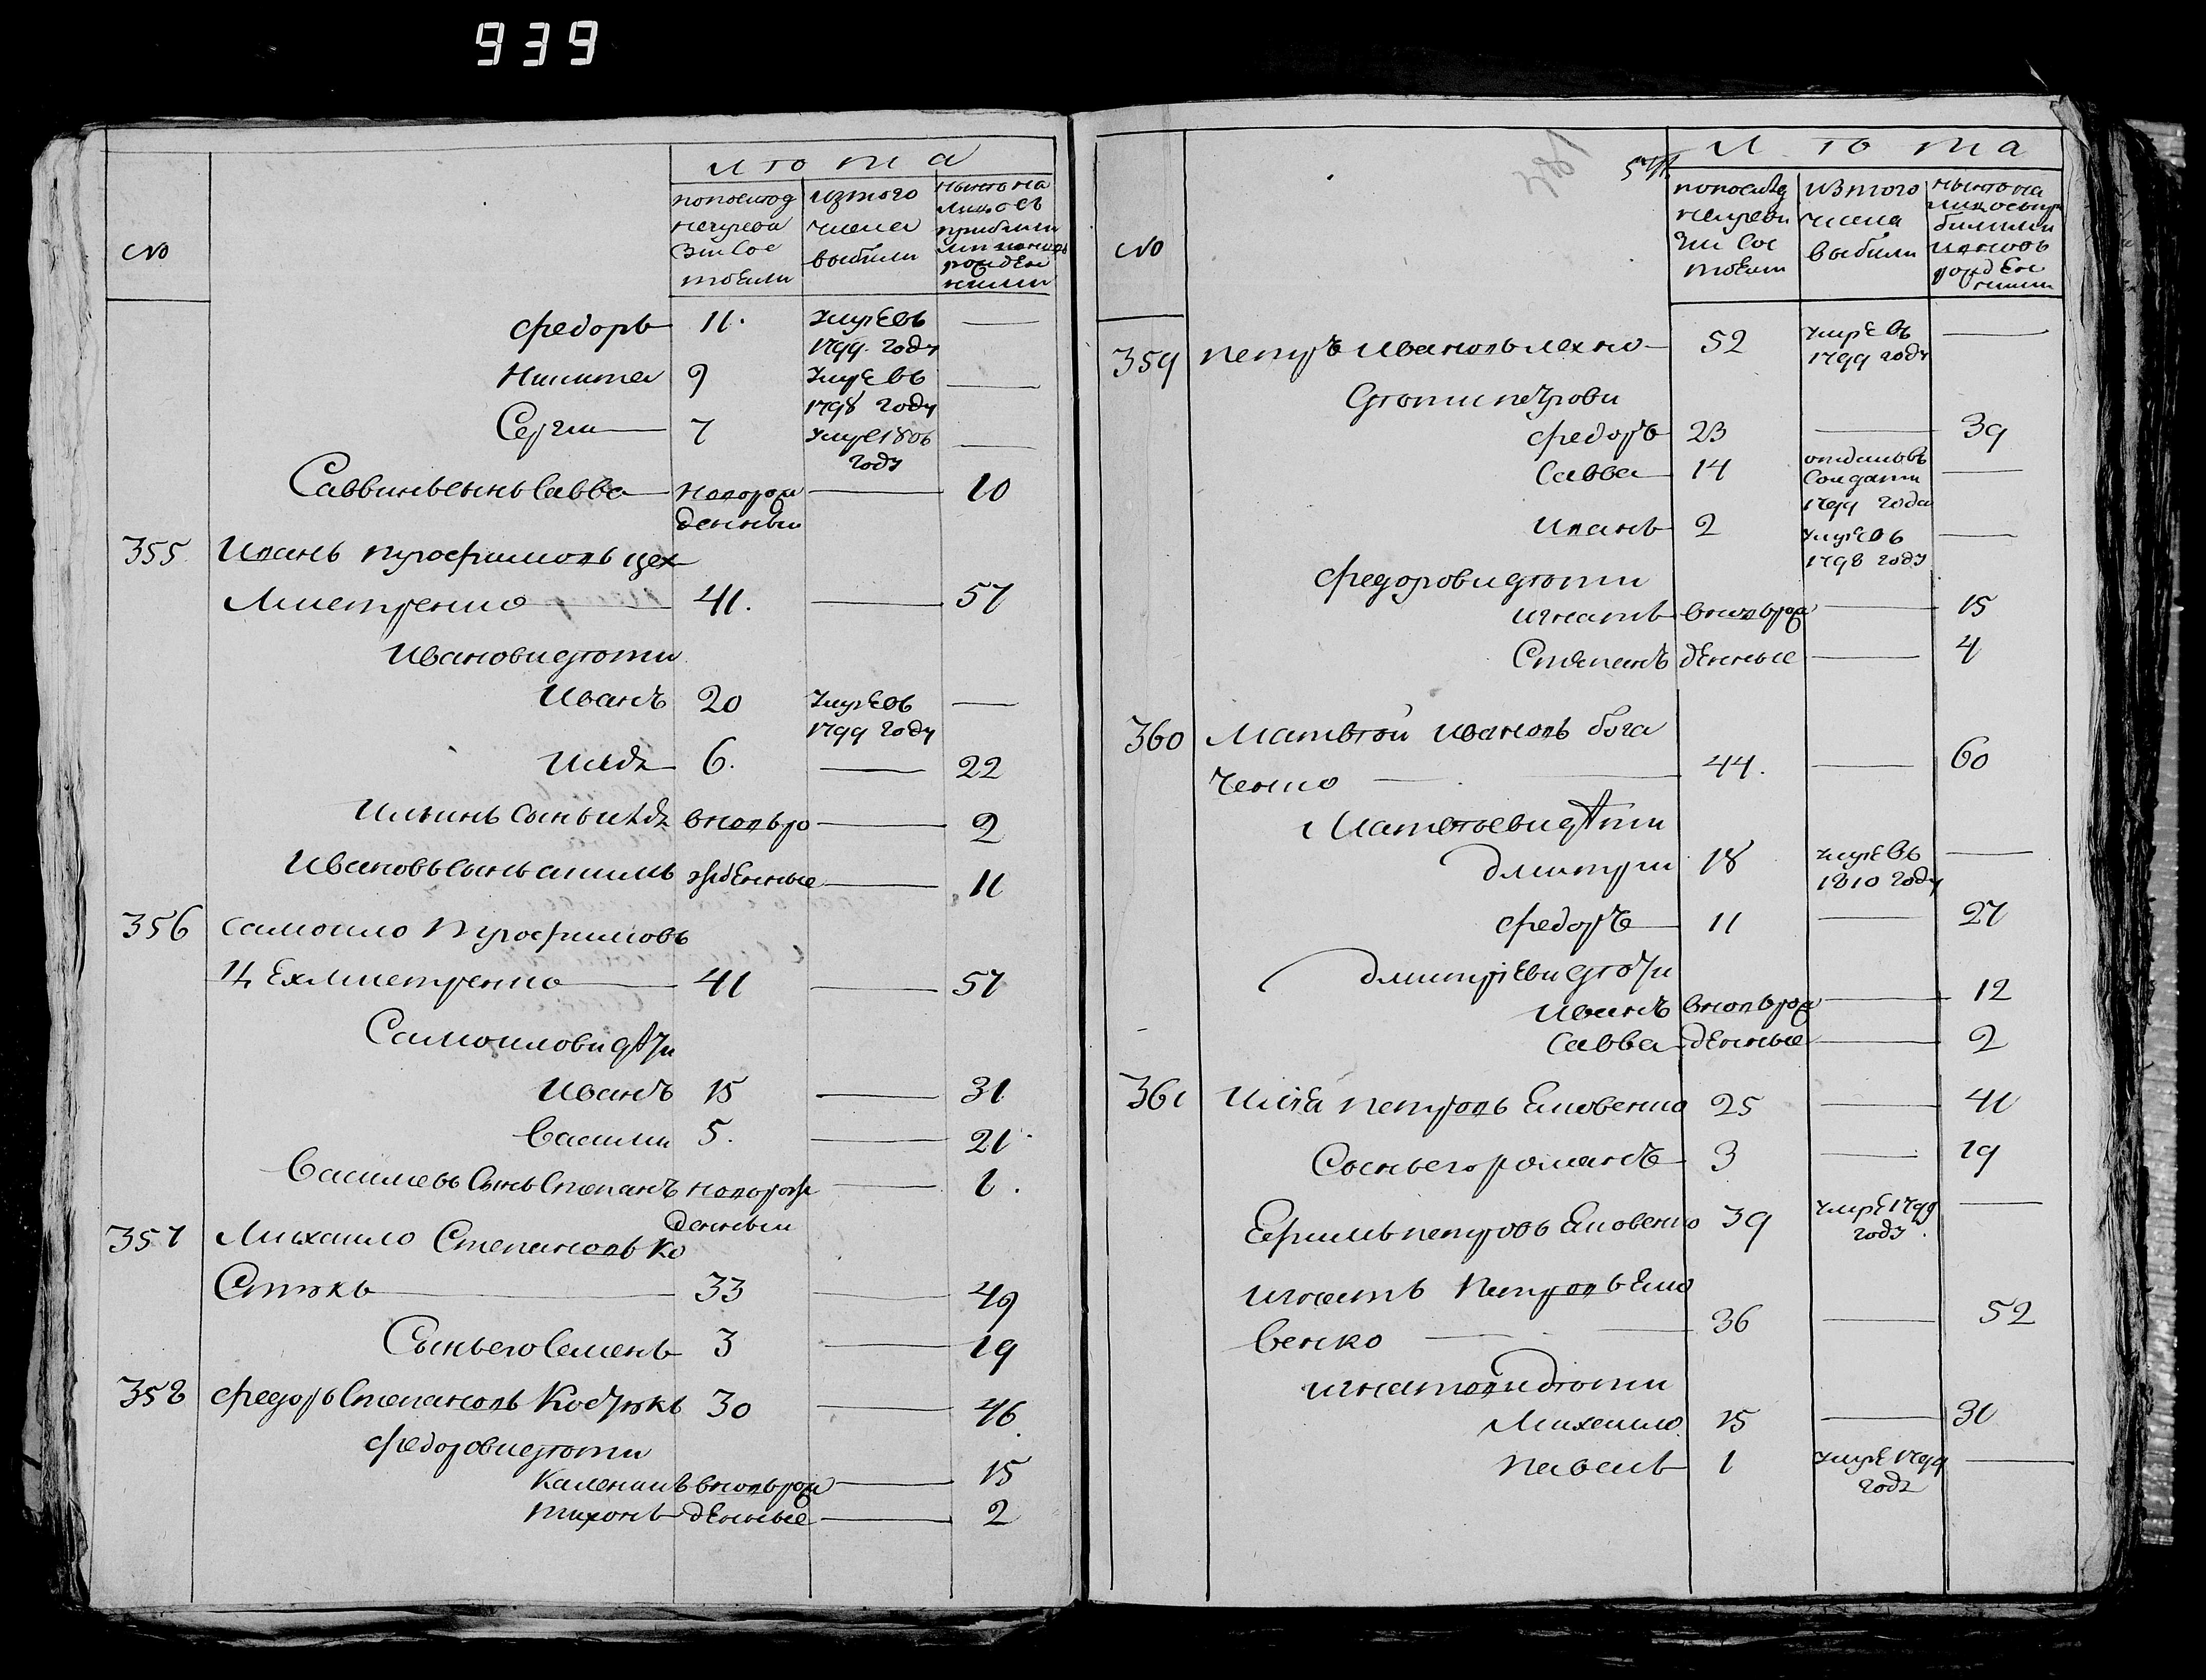 939
лѣта
№
по последней ревизии состояли
из того числа выбыли
ныне на лицо съ прибылыми и вновь рожденными
Федоръ 11. умре въ 1799 году —
Никита 9 умре въ 1798 году —
Сергий 7 умре 1806 году —
Саввинъ сынъ Савва новорожденный — 10
355 Иванъ Трофимовъ Цех
мистренко 41. — 57
Ивановы дѣти
Иванъ 20 умре въ 1799 году —
Илья 6. — 22
Ильинъ сынъ вновьро — 2
Ивановъ сынъ жденные — 11
356 Самойло Трофимовъ
Цехмистренко 41 — 57
Самойловы дѣти
Иванъ 15 — 31
Василий 5. — 21
Васильевъ сынъ Степанъ новорожденный — 1.
357 Михайло Степановъ Ко
стюкъ 33 — 49
Сынъ его Семенъ 3 — 19
358 Федоръ Степановъ Костюкъ 30 — 46
Федоровы дѣти
вновь рож — 15
Тихонъ денные — 2
лѣта
№
по последней ревизии состояли
из того числа выбыли
ныне на лицо съ прибылыми и вновь рожденными
359 Петръ Ивановъ Лехно 52 умре въ 1799 году —
дѣти Петровы
Федоръ 23 — 39
Савва 14 отданъ въ солдаты 1799 года —
Иванъ 2 умре въ 1798 году —
Федоровы дѣти
Игнатъ вновь рож — 15
Степанъ денные — 4
360 Матвѣй Ивановъ Бога
ченко 44. — 60
Матвѣевы дѣти
Дмитрий 18 умре въ 1810 году —
Федоръ 11 — 27
Дмитриевы дѣти
Иванъ вновь рож — 12
Савва денные — 2
361 Илья Петровъ Яковенко 25 — 41
Сынъ его Романъ 3 — 19
Петровъ Яковенко 39 умре 1799 году —
Игнатъ Петровъ Яко
венко 36 — 52
Игнатовы дѣти
Михайло 15 — 31
Павелъ 1 умре 1799 году —